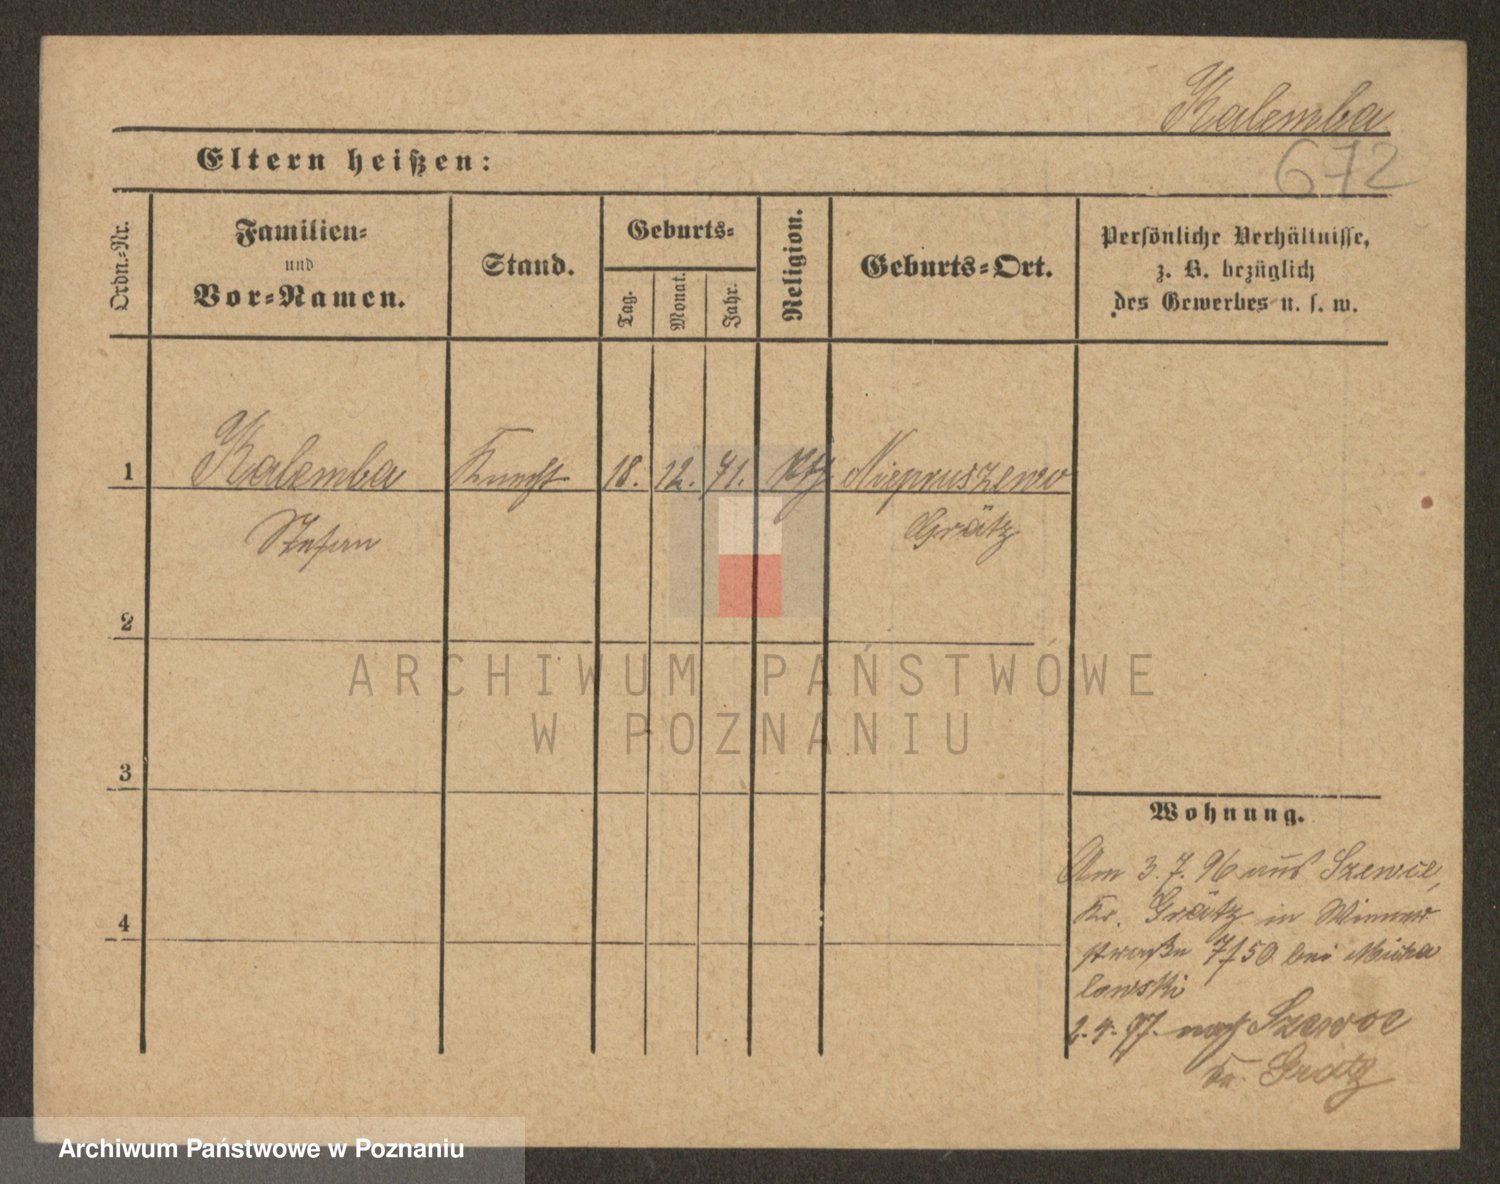 Kalemba
Eltern heißen:
672
Ordn.-Nr.
Familien-
und
Vor-Namen.
Stand.
Geburts-
Tag.
Monat.
Jahr.
Religion.
Geburts-Ort.
Persönliche Verhältnisse,
z. B. bezüglich
des Gewerbes u. s. w.
1 Kalemba Knecht 18. 12. 71. kth Niepruszewo
Stefan Grätz
2
3
4
Wohnung.
Am 3. 7. 96 aus Szewce,
Kr. Grätz in Wiener
straße 7/50 bei Micha
lowski
2. 4. 97. nach Szewce
Kr. Grätz
ARCHIWUM PAŃSTWOWE
W POZNANIU
Archiwum Państwowe w Poznaniu